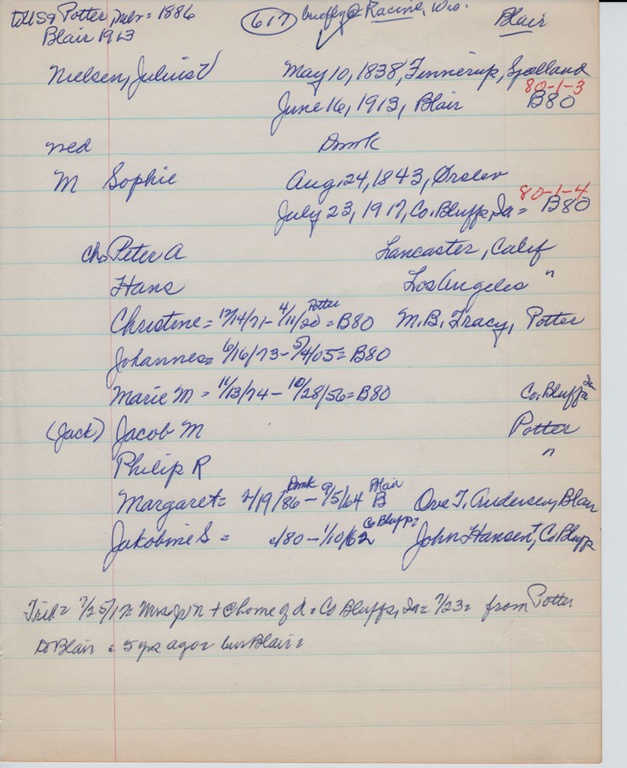 to USA Potter, Nebr = 1886 (617) briefly @ Racine, Wis. Blair
Blair 1913
Nielsen, Julius May 10, 1838, Finnerup, Sjælland
80-1-3
June 16, 1913, Blair B80
med Dmk
M Sophie Aug. 24, 1843, Ørslev
80-1-4
July 23, 1917, Co. Bluffs, Ia = B80
ch= Peter A Lancaster, Calif
Hans Los Angeles "
Potter
Christine = 12/14/71 - 4/11/20 = B80 M.B. Tracy, Potter
Johannes = 6/16/73 - 5/4/05 = B80
Marie M = 11/13/74 - 10/28/56 = B80 Co. Bluffs Ia
(Jack) Jacob M Potter
Philip R "
Dmk Blair
Margaret = 2/19/86 - 9/5/64 B Ove T. Andersen, Blair
Co Bluffs =
Jakobine S = /80 - 1/10/62 John Hansen, Co Bluffs
Trib = 7/25/17 = Mrs J N + @ home of d = Co Bluffs, Ia = 7/23 = from Potter
to Blair = 5 yrs ago = bur Blair =